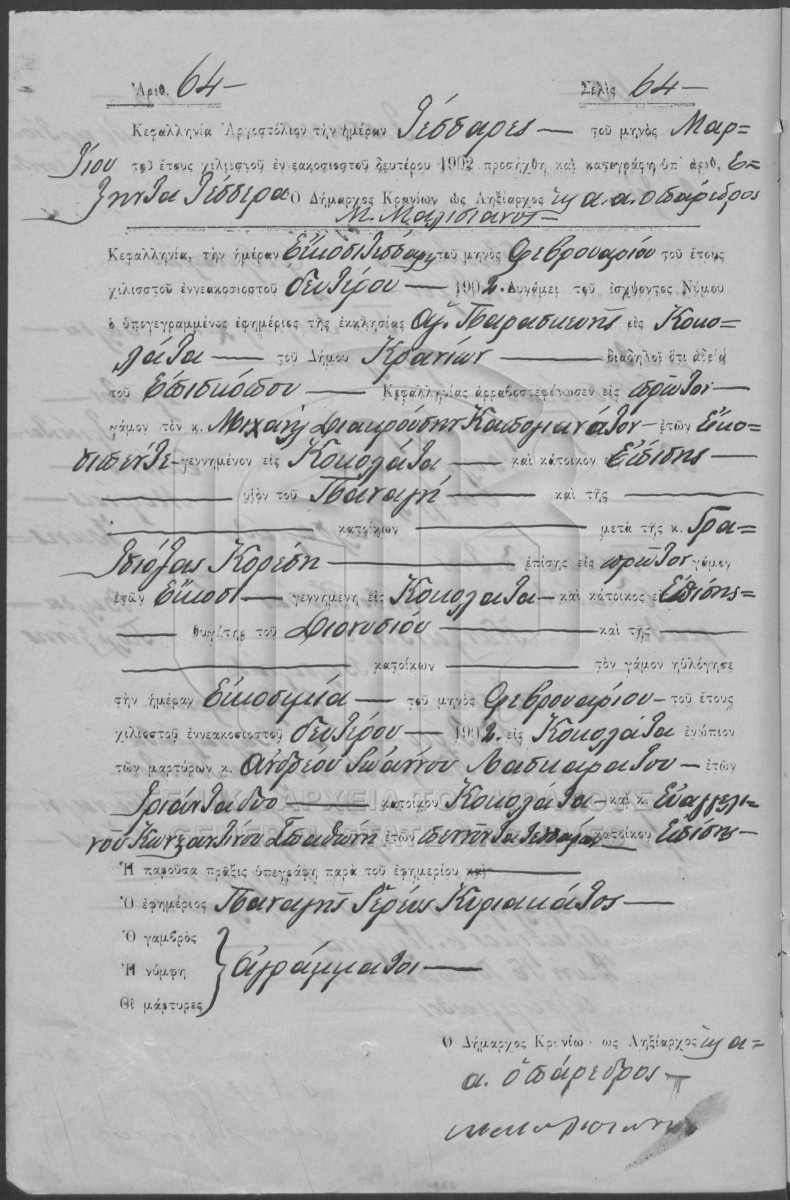 Ἀριθ. 64— Σελὶς 64—
Κεφαλληνία Ἀργοστόλιον τὴν ἡμέραν τέσσαρες— τοῦ μηνὸς Μαρ=
τίου τοῦ ἔτους χιλιοστοῦ ἐννεακοσιοστοῦ δευτέρου 1902 προσήχθη καὶ κατεγράφη ὑπ' ἀριθ. ἑ=
ξῆντα τέσσερα Ὁ Δήμαρχος Κρανίων ὡς Ληξίαρχος τῃ α. α. ὁ πάρεδρος
Κεφαλληνία, τὴν ἡμέραν Εἴκοσι τέσσαρες τοῦ μηνὸς Φεβρουαρίου τοῦ ἔτους
χιλιοστοῦ ἐννεακοσιοστοῦ δευτέρου— 1902. Δυνάμει τοῦ ἰσχύοντος Νόμου
ὁ ὑπογεγραμμένος ἐφημέριος τῆς ἐκκλησίας Ἁγ. Παρασκευῆς εἰς Κοκο=
λάτα— τοῦ Δήμου Κρανίων— διαδηλοῖ ὅτι ἀδείᾳ
τοῦ Ἐπισκόπου— Κεφαλληνίας ἀρραβοστεφάνωσεν εἰς πρῶτον—
γάμον τὸν κ. Μιχαὴλ Διακρούσην Καπολιανάτον— ἐτῶν εἴκο=
σιπέντε— γεννημένον εἰς Κοκολάτα— καὶ κάτοικον Ἐπίσης—
υἱὸν τοῦ Παναγῆ— καὶ τῆς—
κατοίκων— μετὰ τῆς κ. Γρα=
τσιόζας Κορέση— ἐπίσης εἰς πρῶτον γάμον
ἐτῶν Εἴκοσι— γεννημένη εἰς Κοκολάτα— καὶ κάτοικος εἰς Ἐπίσης—
θυγάτηρ τοῦ Διονυσίου— καὶ τῆς—
κατοίκων— τὸν γάμον ηὐλόγησε
τὴν ἡμέραν Εἰκοσιμία— τοῦ μηνὸς Φεβρουαρίου— τοῦ ἔτους
χιλιοστοῦ ἐννεακοσιοστοῦ δευτέρου— 1902. εἰς Κοκολάτα ἐνώπιον
τῶν μαρτύρων κ. Ἀνδρέου Ἰωάννου Λασκαράτου— ἐτῶν
τριάντα δύο— κατοίκου Κοκολάτα— καὶ κ. Εὐαγγελι=
νοῦ Κωνσταντίνου Σπαθῆ ἐτῶν πενῆντα τεσσάρων κατοίκου Ἐπίσης—
Ἡ παροῦσα πρᾶξις ὑπεγράφη παρὰ τοῦ ἐφημερίου καὶ—
Ὁ ἐφημέριος Παναγῆς Ἱερεὺς Κυριακάτος—
Ὁ γαμβρὸς
Ἡ νύμφη ἀγράμματοι—
Οἱ μάρτυρες
Ὁ Δήμαρχος Κρανίων ὡς Ληξίαρχος τῃ α=
α. ὁ πάρεδρος—
ΓΕΝΙΚΑ ΑΡΧΕΙΑ ΤΟΥ ΚΡΑΤΟΥΣ